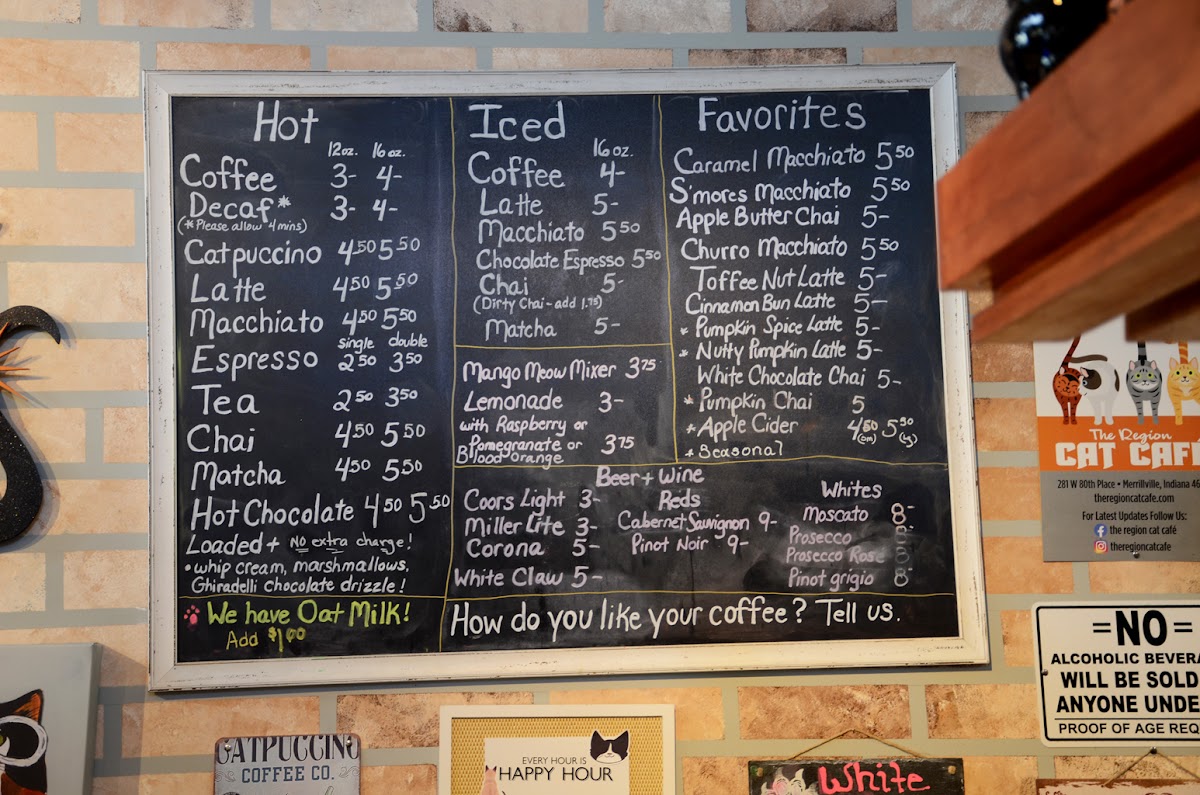 Hot
12oz. 16oz.
Coffee 3- 4-
Decaf* 3- 4-
(*Please allow 4 mins)
Catpuccino 4.50 5.50
Latte 4.50 5.50
Macchiato 4.50 5.50
single double
Espresso 2.50 3.50
Tea 2.50 3.50
Chai 4.50 5.50
Matcha 4.50 5.50
Hot Chocolate 4.50 5.50
Loaded + NO extra charge!
• whip cream, marshmallows,
Ghiradelli chocolate drizzle!
We have Oat Milk!
Add $1.00
Iced
16oz.
Coffee 4-
Latte 5-
Macchiato 5.50
Chocolate Espresso 5.50
Chai 5-
(Dirty Chai - add 1.75)
Matcha 5-
Mango Meow Mixer 3.75
Lemonade 3-
with Raspberry or
Pomegranate or 3.75
Blood orange
Favorites
Caramel Macchiato 5.50
S'mores Macchiato 5.50
Apple Butter Chai 5-
Churro Macchiato 5.50
Toffee Nut Latte 5-
Cinnamon Bun Latte 5-
* Pumpkin Spice Latte 5-
* Nutty Pumpkin Latte 5-
White Chocolate Chai 5-
* Pumpkin Chai 5
* Apple Cider 4.50 (sm) 5.50 (lg)
* Seasonal
Beer + Wine
Coors Light 3-
Miller Lite 3-
Corona 5-
White Claw 5-
Reds
Cabernet Sauvignon 9-
Pinot Noir 9-
Whites
Moscato 8-
Prosecco 8-
Prosecco Rose 8-
Pinot grigio 8-
How do you like your coffee? Tell us.
The Region
CAT CAFE
281 W 80th Place • Merrillville, Indiana 46
theregioncatcafe.com
For Latest Updates Follow Us:
the region cat café
theregioncatcafe
=NO=
ALCOHOLIC BEVERA
WILL BE SOLD
ANYONE UNDE
PROOF OF AGE REQ
CATPUCCINO
COFFEE CO.
EVERY HOUR IS
HAPPY HOUR
White